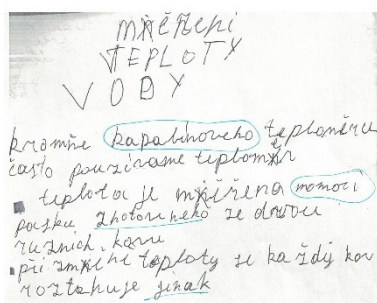 měření
TEPLOTY
VODY
kromňe kapalinoveho teploměru
často použiváme teploměr
teplota je mňeřena momoci
pasku zhotoveneho ze dvou
ruznich kovu
při změně teploty se každý kov
roztahuje jinak